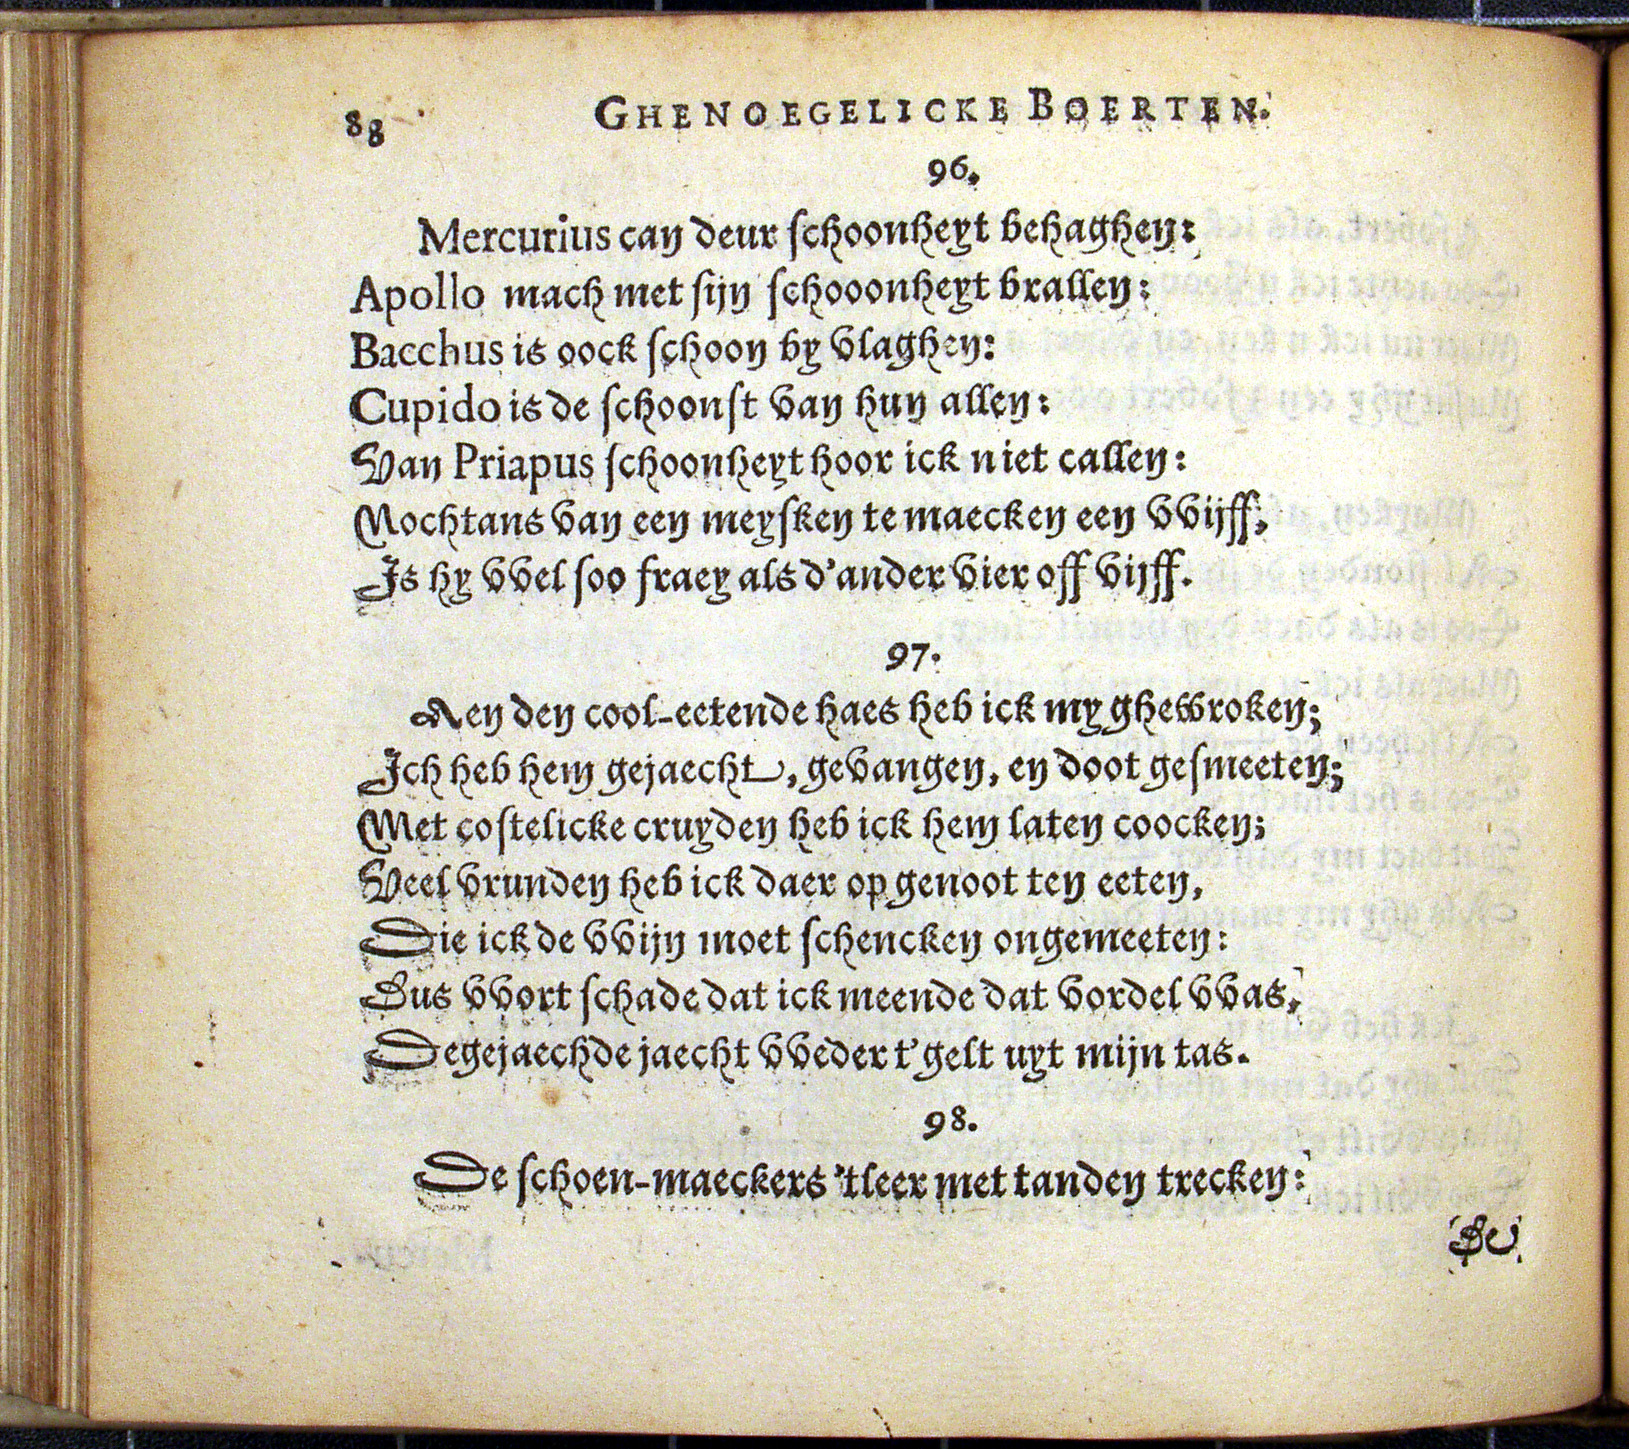 88 GHENOEGELICKE BOERTEN.
96.
Mercurius can deur schoonheyt behaghen:
Apollo mach met sijn schooonheyt brallen:
Bacchus is oock schoon by vlaghen:
Cupido is de schoonst van hun allen:
Van Priapus schoonheyt hoor ick niet callen:
Nochtans van een meysken te maecken een vvijff,
Is hy vvel soo fraey als d'ander vier off vijff.
97.
Aen den cool-eetende haes heb ick my ghewroken;
Ich heb hem gejaecht, gevangen, en doot gesmeeten;
Met costelicke cruyden heb ick hem laten coocken;
Veel vrunden heb ick daer op genoot ten eeten,
Die ick de vvijn moet schencken ongemeeten:
Dus vvort schade dat ick meende dat vordel vvas,
Degejaechde jaecht vveder t'gelt uyt mijn tas.
98.
De schoen-maeckers 'tleer met tanden trecken:
Be